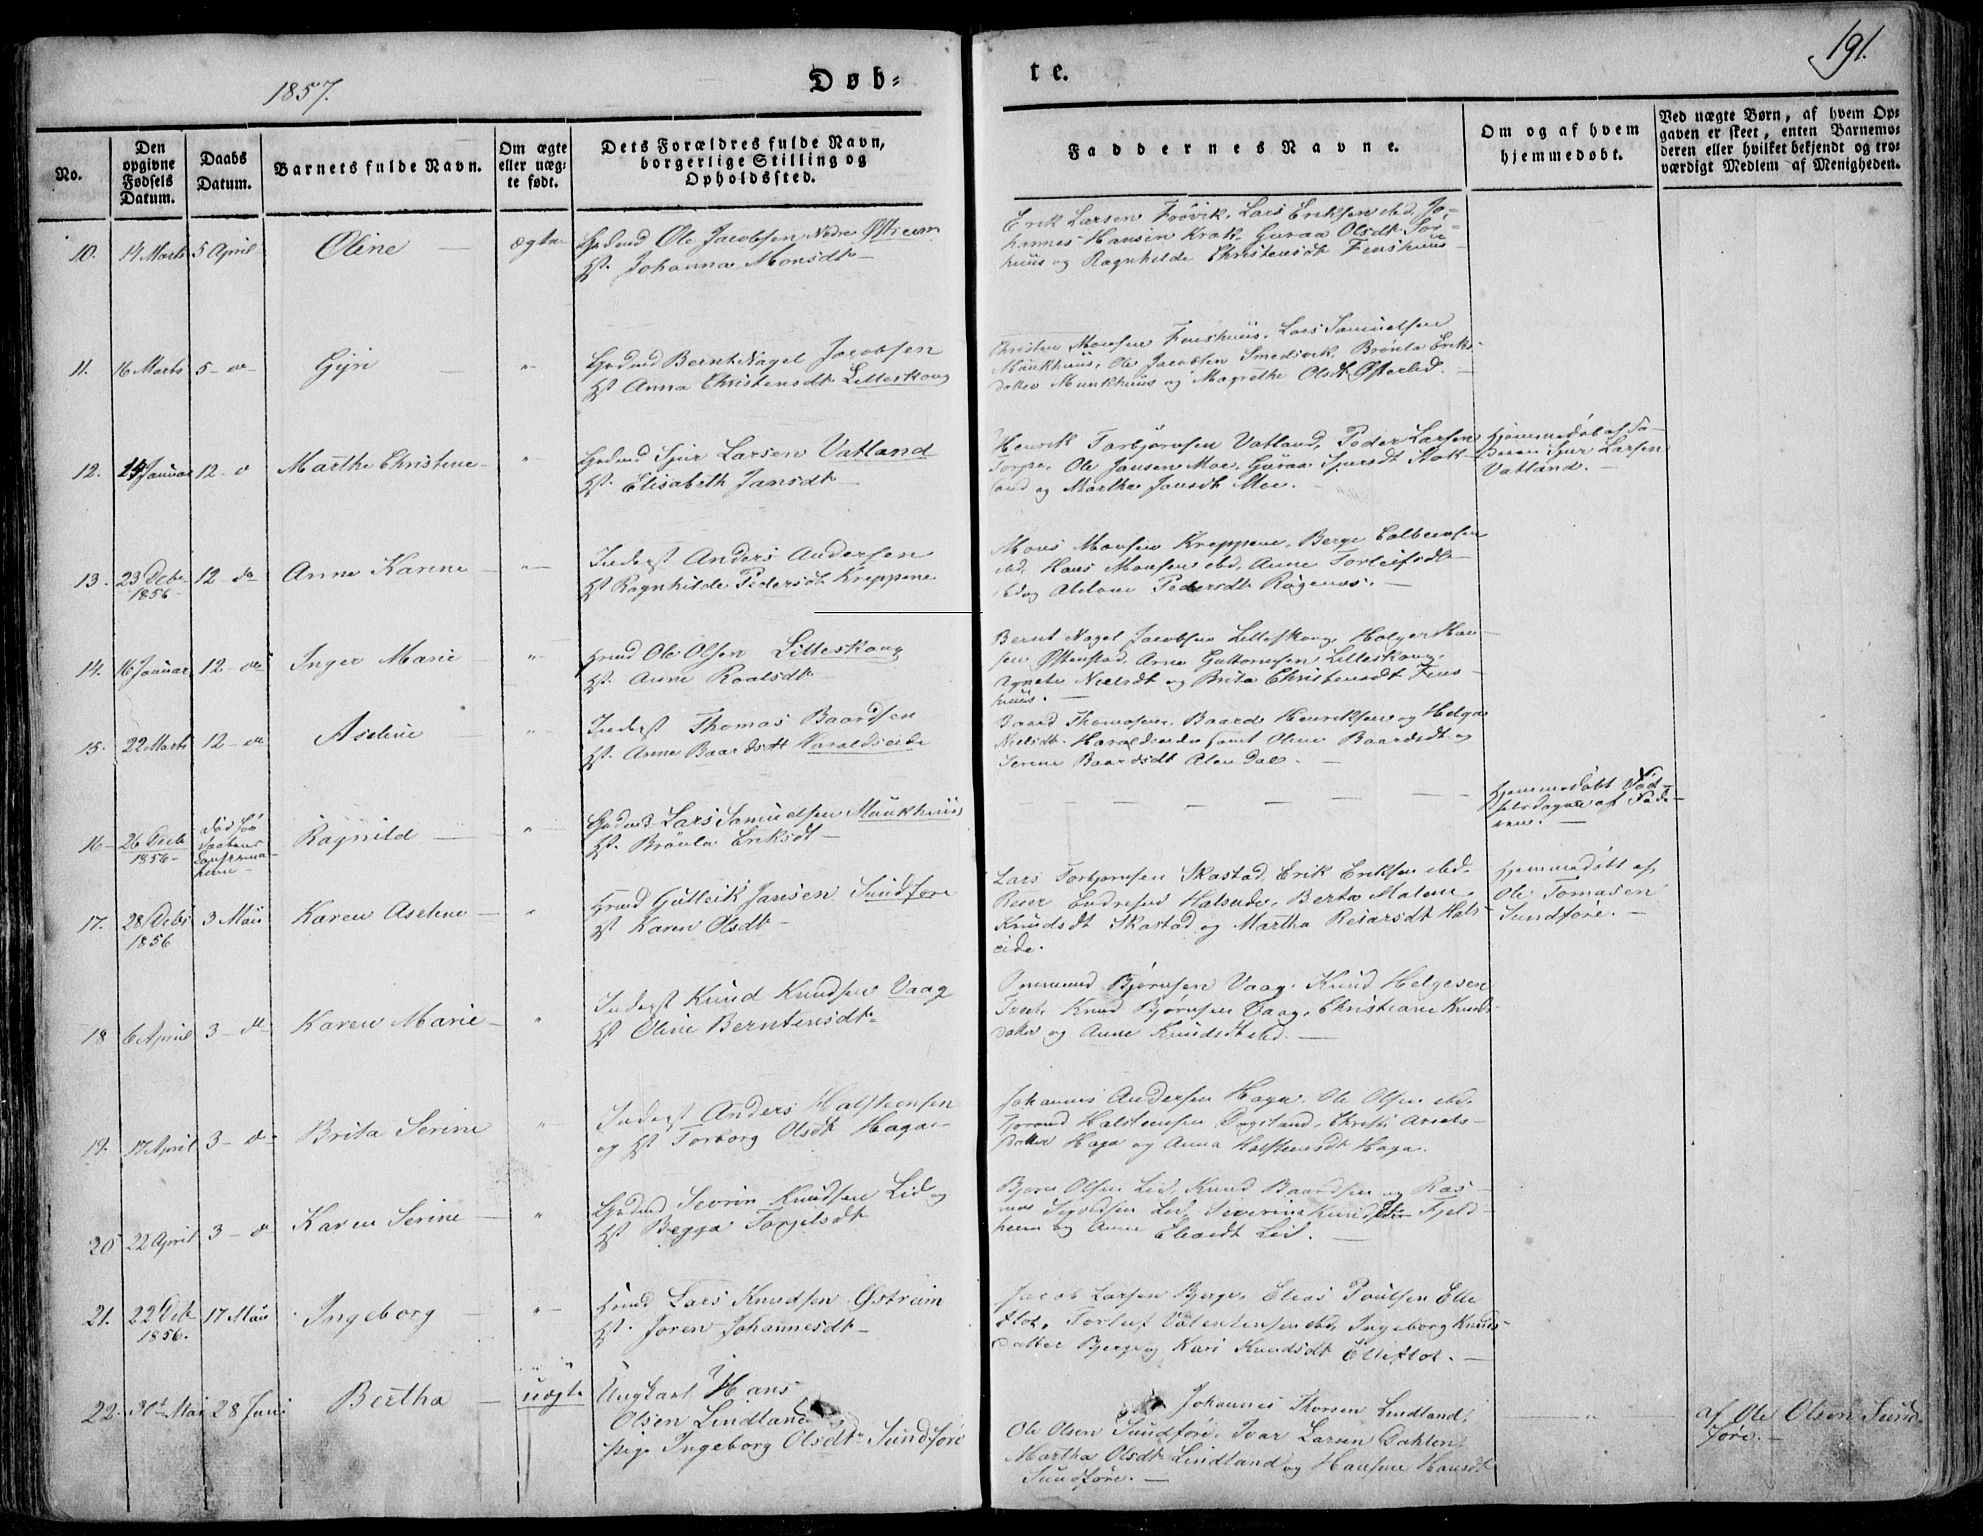 1857.
Døb-
te.
191.
No.
Den
opgivne
Fødsels
Datum.
Daabs
Datum.
Barnets fulde Navn.
Om ægte
eller uæg-
te født.
Dets Forældres fulde Navn,
borgerlige Stilling og
Opholdssted.
Faddernes Navne.
Om og af hvem
hjemmedøbt.
Ved uægte Børn, af hvem Op-
gaven er skeet, enten Barnemo-
deren eller hvilket bekjendt og tro-
værdigt Medlem af Menigheden.
10. 14 Marts 5 April Oline — ægte Gadmd Ole Jacobsen Nedre Østrem
Hst. Johanna Monsdt —
Erik Larsen Frøvik, Lars Eriksen ibd, Jo-
hannes Hansen Krak, Guraa Olsdt Tor-
huus og Ragnhilde Christensdt Fenshuus
11. 16 Marts 5 - do - Gyri — " Gadmd Bernt Nagel Jacobsen
Hst Anna Christensdt Litleskoug
Christen Monsen Fenshuus, Lars Samuelsen
Munkhuus, Ole Jacobsen Smedsvik, Brønla Eriks-
datter Munkhuus og Magrethe Olsdt Østerlid. —
12. 24 Januar 12 - d Marthe Christine - " Gadmd Sjur Larsen Vatland
Hst. Elisabeth Jansdt —
Henrik Torbjørnsen Vatland, Peder Larsen
Torpe, Ole Jansen Moe, Guraa Sjursdt Stok-
land og Martha Jansdt Moe. —
Hjemmedøbt af Fa-
deren Sjur Larsen
Vatland. —
13. 23 Decbr
1856 - 12 do Anne Karine - " Inderst Anders Andersen
Hst Ragnhilde Pedersdt Kreppene
Mons Monsen Kreppene, Berge Colbeensen
ibd, Hans Monsen ibd, Anne Torleifsdt
ibd og Pedersdt Røgenes. —
14. 16 Januar 12 - do Inger Marie - " Hmd Ole Olsen Litleskoug
Hst. Anne Roalsdt —
Bernt Nagel Jacobsen Litleskoug, Holger Han-
sen Østenstad, Arne Guttormsen Litleskoug,
Agnete Nielsdt og Brita Christensdt Fens-
huus. —
15. 22 Marts 12 - do Aseline — " Inderst Thomas Baardsen
Hst. Anne Baardsdt Haraldseide
Baard Thomasen, Baard Henriksen og Helga
Nielsdt Haraldseide samt Oline Baardsdt og
Serine Baardsdt Alendal. —
16 - 26 Decb
1856 - Død før
Daabens
Confirma-
tion — Ragnild — " Gadmd Lars Samuelsen Munkhuus
Hst. Brønla Eriksdt —
— — — — — —
Hjemmedøbt Fød-
selsdagen af Fade-
ren. —
17. 28 Decbr
1856 3 Mai Karen Aseline - " Hmd Gulleik Jansen Sundføre
Hst Karen Olsdt —
Lars Torbjørnsen Skastad, Erik Eriksen ibd,
Reier Endresen Halseide, Berta Malene
Knudsdt Skastad og Martha Reiarsdt Hals-
eide.
Hjemmedøbt af
Ole Tomasen
Sundføre. —
18 6 April 3 - d Karen Marie - " Inderst Knud Knudsen Vaag
Hst Oline Berntensdt
Ommund Bjørnsen Vaag, Knud Helgesen
Tveit, Knud Bjørnsen Vaag, Christiane Knuds-
datter og Anne Knudsdt ibd. —
19. 17 April 3 - d Brita Serine " Inderst Anders Halstensen
og Hst Torborg Olsdt Haga —
Johannes Andersen Haga, Ole Olsen ibd,
Halstensen Dagsland, Christi Arnets-
datter Haga og Anna Halstensdt Haga.
20 22 April 3 - d Karen Serine - " Gadmd Sevrin Knudsen Lid og
Hst Begga Torjilsdt
Bjørn Olsen Lid, Knud Baardsen og Ras-
mus Sivertsen Lid, Severine Knudsdtr Fjeld-
heim og Anne Lid. —
21. 22 Decb
1856. 17 Mai Ingeborg — " Hmd Lars Knudsen Østrem
Hst. Joren Johannesdt —
Jacob Larsen Bjerge, Elias Poulsen Elle-
flot, Torleif Valentinsen ibd, Ingeborg Knuds-
datter Bjerge og Kari Knudsdt Elleflot. —
22. 30t Mai 28 Juni Bertha — uægte Ungkarl Hans
Olsen Lindland
Pige Ingeborg Olsdt Sundføre
Johannes Thorsen Lindland,
Ole Olsen Sundføre, Ivar Larsen Dahlen,
Martha Olsdt Lindland og Hansine Hansdt
Sundføre. —
— " —
af Ole Olsen Sund-
føre. —